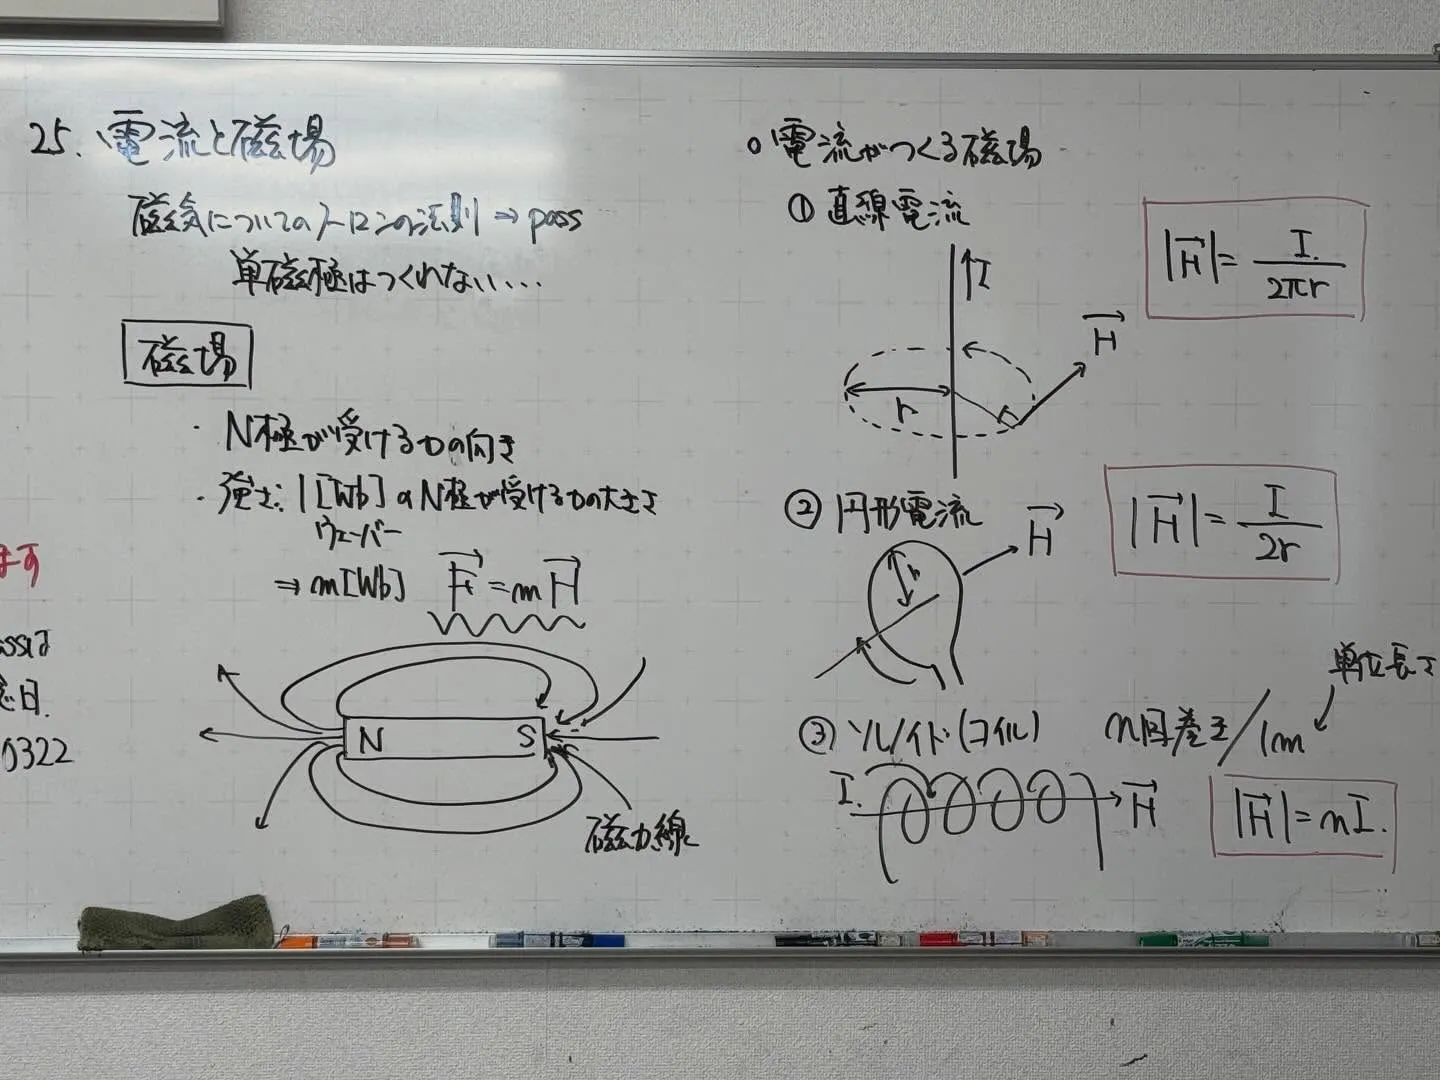 25. 電流と磁場
磁気についてのクーロンの法則 ⇒ pass
単磁極はつくれない...
磁場
・N極が受ける力の向き
・強さ: 1[Wb]のN極が受ける力の大きさ
ウェーバー
⇒ m[Wb] F→ = mH→
N S
磁力線
ます
日.
0322
○電流がつくる磁場
① 直線電流
|H→| = I / 2πr
I
H→
r
② 円形電流
H→
|H→| = I / 2r
r
③ ソレノイド(コイル) n回巻き/1m
単位長さ
I. H→
|H→| = nI.